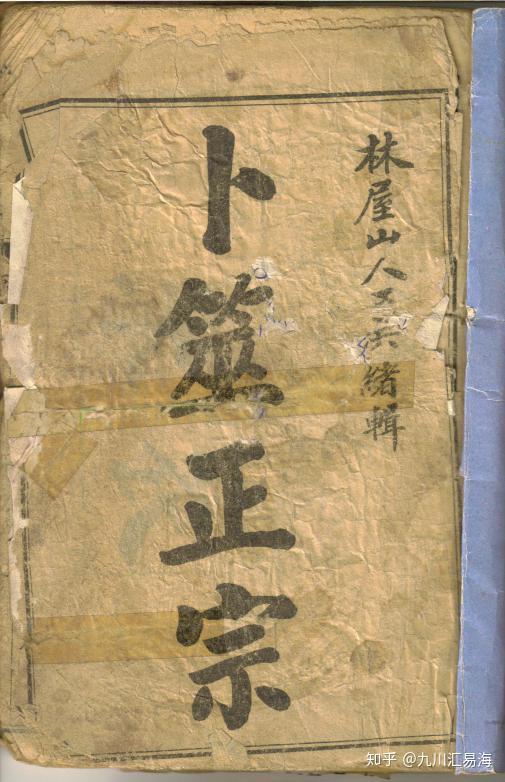 林屋山人王洪緒輯
卜筮正宗
知乎 @九川汇易海